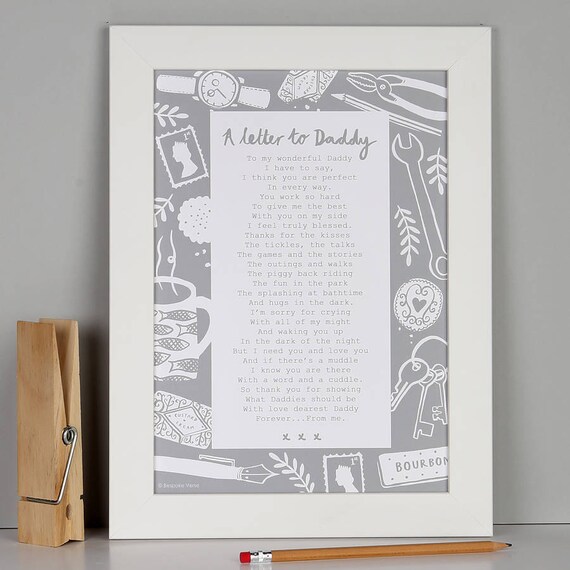 A letter to Daddy
To my wonderful Daddy
I have to say,
I think you are perfect
In every way.
You work so hard
To give me the best
With you on my side
I feel truly blessed.
Thanks for the kisses
The tickles, the talks
The games and the stories
The outings and walks
The piggy back riding
The fun in the park
The splashing at bathtime
And hugs in the dark.
I'm sorry for crying
With all of my might
And waking you up
In the dark of the night
But I need you and love you
And if there's a muddle
I know you are there
With a word and a cuddle.
So thank you for showing
What Daddies should be
With love dearest Daddy
Forever...From me.
x x x
1st
CUSTARD
CREAM
1st
BOURBON
© Bespoke Verse